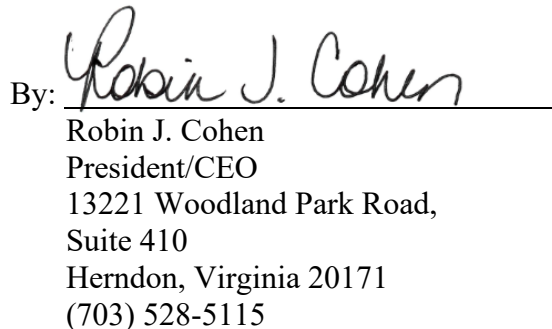 By: Robin J. Cohen
Robin J. Cohen
President/CEO
13221 Woodland Park Road,
Suite 410
Herndon, Virginia 20171
(703) 528-5115